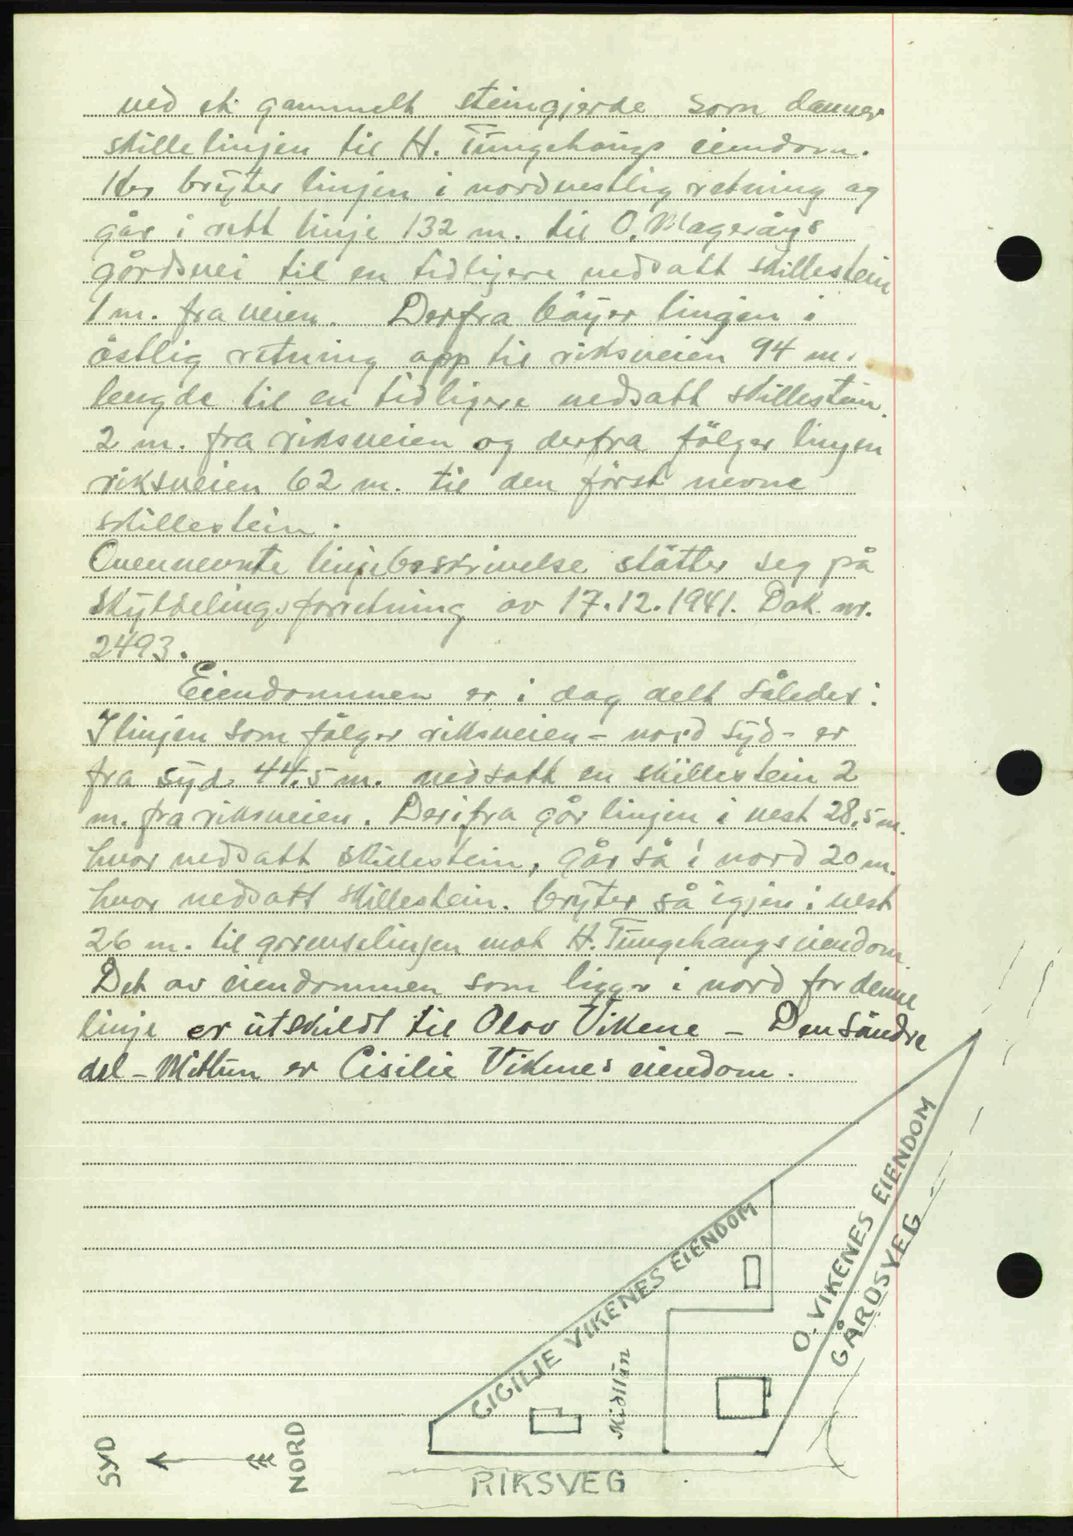 ved et gammelt steingjerde som danner
skillelinjen til H. Tungehaugs eiendom.
Her bryter linjen i nordvestlig retning og
går i rett linje 132 m. til O. Magerøys
gårdsvei til en tidligere nedsatt skillestein
1 m. fra veien. Derfra bøyer lingen i
østlig retning opp til riksveien 94 m.
lengde til en tidligere nedsatt skillestein
2 m. fra riksveien og derfra følger lingen
riksveien 62 m. til den først nevne
skillestein.
Ovennevnte linjebeskrivelse støtter seg på
Skyldelingsforretning av 17.12.1941. Dok. nr.
2493.
Eiendommen er i dag delt således:
I linjen som følger riksveien - nord syd - er
fra syd 44.5 m. nedsatt en skillestein 2
m. fra riksveien. Derifra går linjen i vest 28,5 m.
hvor nedsatt skillestein, går så i nord 20 m.
hvor nedsatt skillestein. bryter så igjen i vest
26 m. til grenselinjen mot H. Tungehaugs eiendom.
Det av eiendommen som ligger i nord for denne
linje er utskildt til Olav Vikene - Den søndre
del - Midtun er Cisilie Vikenes eiendom.
CICILIE VIKENES EIENDOM
O. VIKENES EIENDOM
GÅRDSVEG
Midttun
SYD
NORD
RIKSVEG